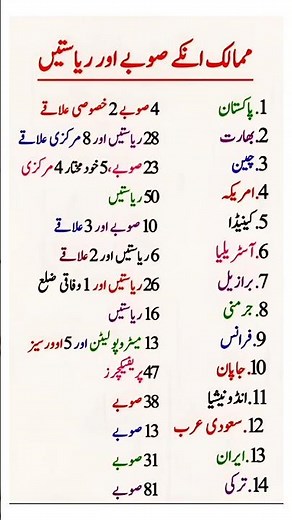 ممالک انکے صوبے اور ریاستیں
1. پاکستان 4 صوبے 2 خصوصی علاقے
2. بھارت 28 ریاستیں اور 8 مرکزی علاقے
3. چین 23 صوبے، 5 خود مختار 4 مرکزی
4. امریکہ 50 ریاستیں
5. کینیڈا 10 صوبے اور 3 علاقے
6. آسٹریلیا 6 ریاستیں اور 2 علاقے
7. برازیل 26 ریاستیں اور 1 وفاقی ضلع
8. جرمنی 16 ریاستیں
9. فرانس 13 میٹروپولیٹن اور 5 اوورسیز
10. جاپان 47 پریفیکچرز
11. انڈونیشیا 38 صوبے
12. سعودی عرب 13 صوبے
13. ایران 31 صوبے
14. ترکی 81 صوبے